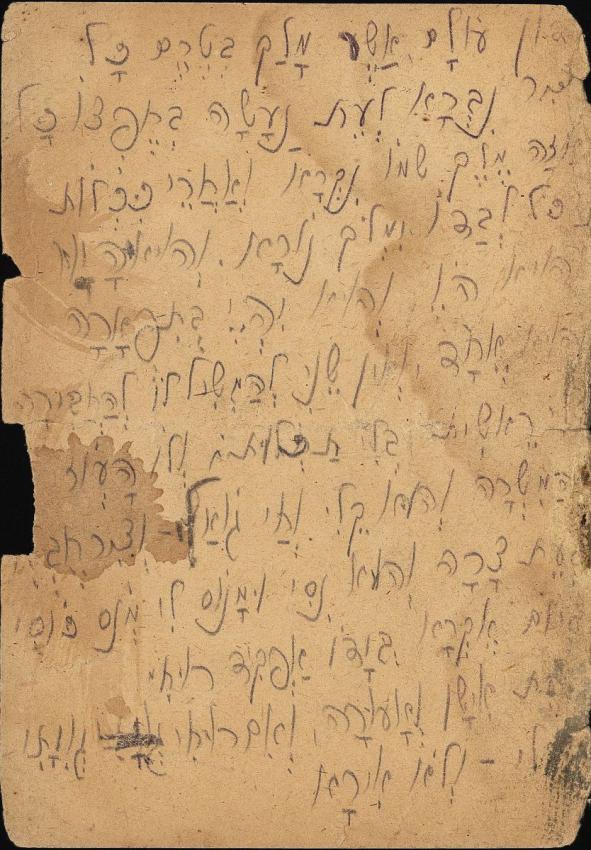 עוֹלָם אֲשֶׁר מָלַךְ בְּטֶרֶם כָּל
נִבְרָא לְעֵת נַעֲשָׂה בְחֶפְצוֹ כָּל
מֶלֶךְ שְׁמוֹ נִקְרָא וְאַחֲרֵי כִּכְלוֹת
כֹּל לְבַדּוֹ יִמְלֹךְ נוֹרָא. וְהוּא הָיָה וְהוּא
הֹוֶה וְהוּא יִהְיֶה בְּתִפְאָרָה
אֶחָד וְאֵין שֵׁנִי לְהַמְשִׁיל לוֹ לְהַחְבִּירָה
רֵאשִׁית בְּלִי תַכְלִית וְלוֹ הָעֹז
הַמִּשְׂרָה וְהוּא קֵלִי וְחַי גּוֹאֲלִי - וְצוּר חֶבְלִי
צָרָה וְהוּא נִסִּי וּמָנוֹס לִי מְנָת כּוֹסִי
אֶקְרָא. בְּיָדוֹ אַפְקִד רוּחִי
אִישַׁן וְאָעִירָה, וְאִם רוּחִי גְּוִיָּתִי
לִי - וְלֹא אִירָא